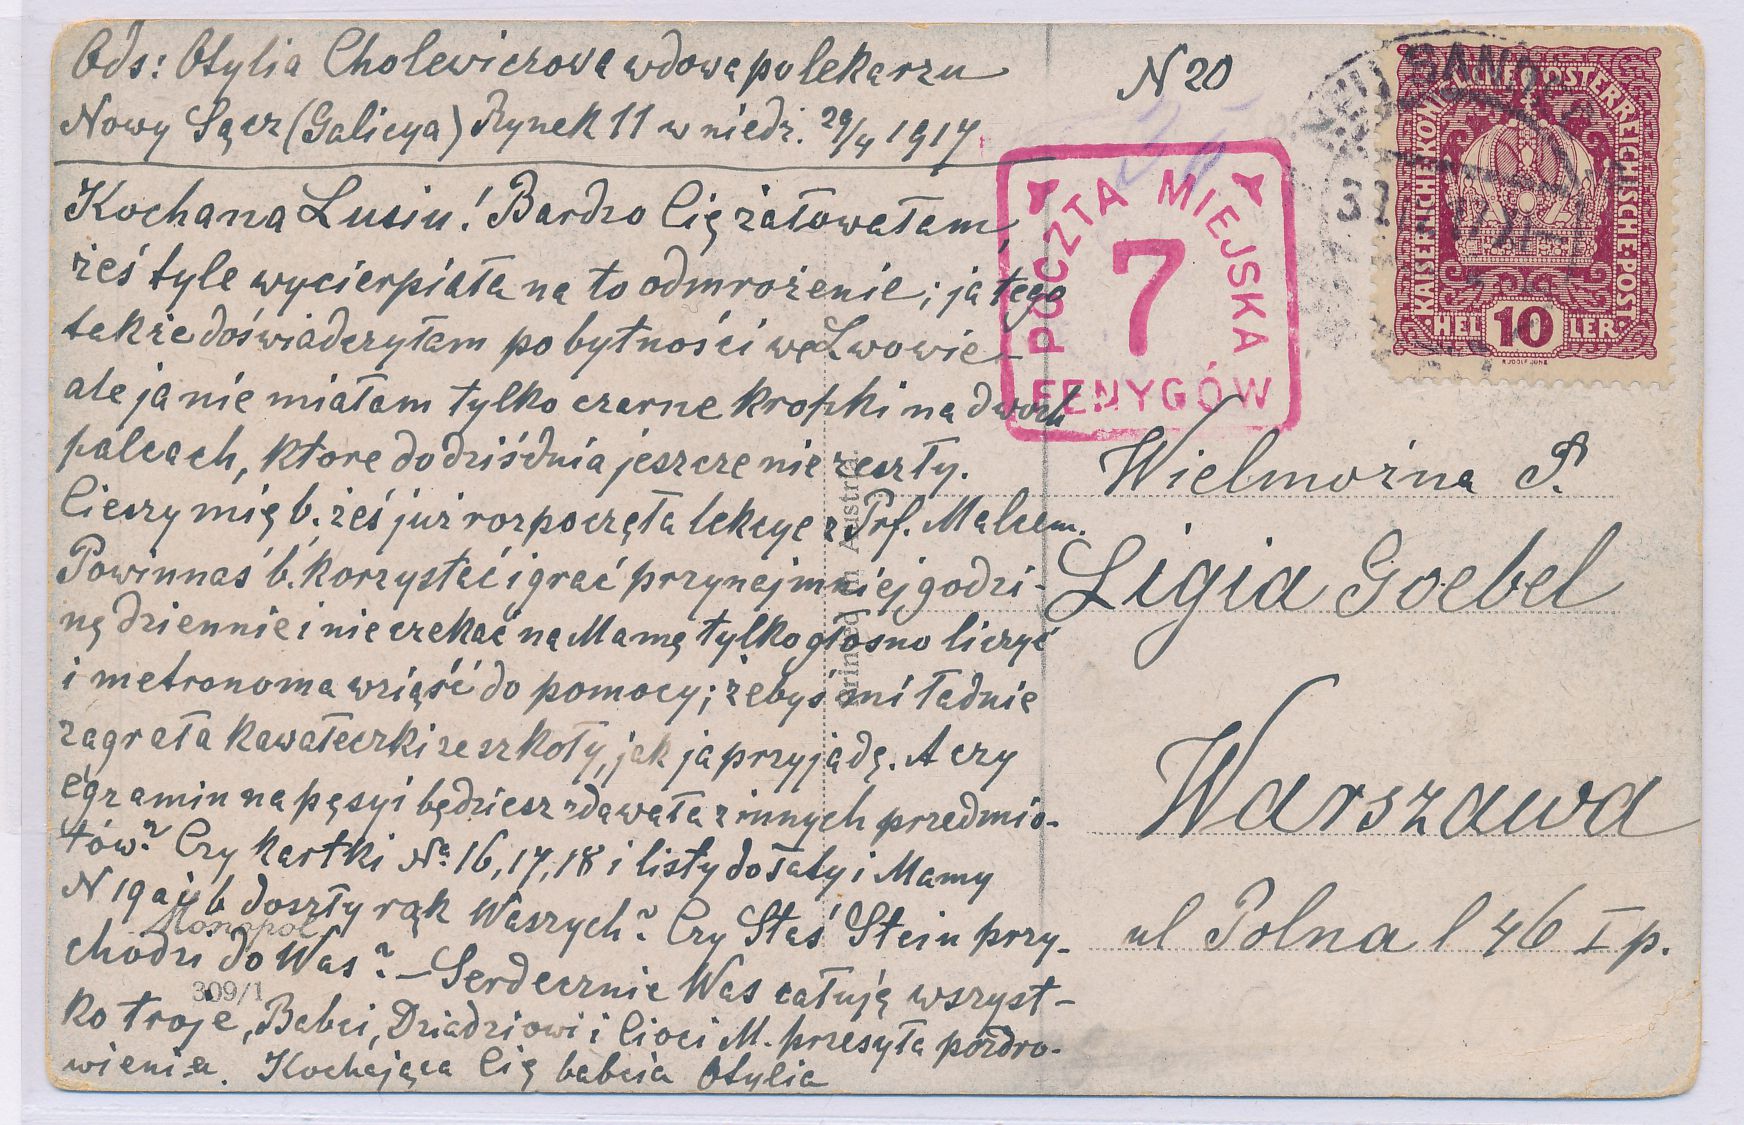 Ods: Otylia Cholewiczowa wdowa po lekarzu
Nowy Sącz (Galicya) Rynek 11 w niedz. 29/4 1917
Kochana Lusiu! Bardzo Cię żałowałam,
żeś tyle wycierpiała na to odmrożenie; ja tego
także doświadczyłam po bytności we Lwowie
ale ja nie miałam tylko czarne kropki na dwoch
palcach, które do dziś dnia jeszcze nie zeszły.
Cieszy mię b. żeś już rozpoczęła lekcye z Prf. Malcem.
Powinnaś b. korzystać i grać przynajmniej godzi-
nę dziennie i nie czekać na Mamę tylko głosno liczyć
i metronoma wziąść do pomocy; żebyś mi ładnie
zagrała kawałeczki ze szkoły, jak ja przyjadę. A czy
egzamin na pęsyi będziesz zdawała z innych przedmio-
tów? Czy kartki No 16, 17, 18 i listy do Taty i Mamy
N 19 a i b doszły rąk Waszych? Czy Staś Stein przy-
chodzi do Was? – Serdecznie Was całuję wszyst-
ko troje, Babci, Dziadziowi i Cioci M. przesyła pozdro-
wienia. Kochająca Cię babcia Otylia
N 20
POCZTA MIEJSKA
7
FENYGÓW
KAISERLICHE KÖNIGLICHE ÖSTERREICHISCHE POST
HEL 10 LER
Wielmożna P.
Ligia Goebel
Warszawa
ul Polna l 46 I p.
Printed in Austria.
Monopol
309/1